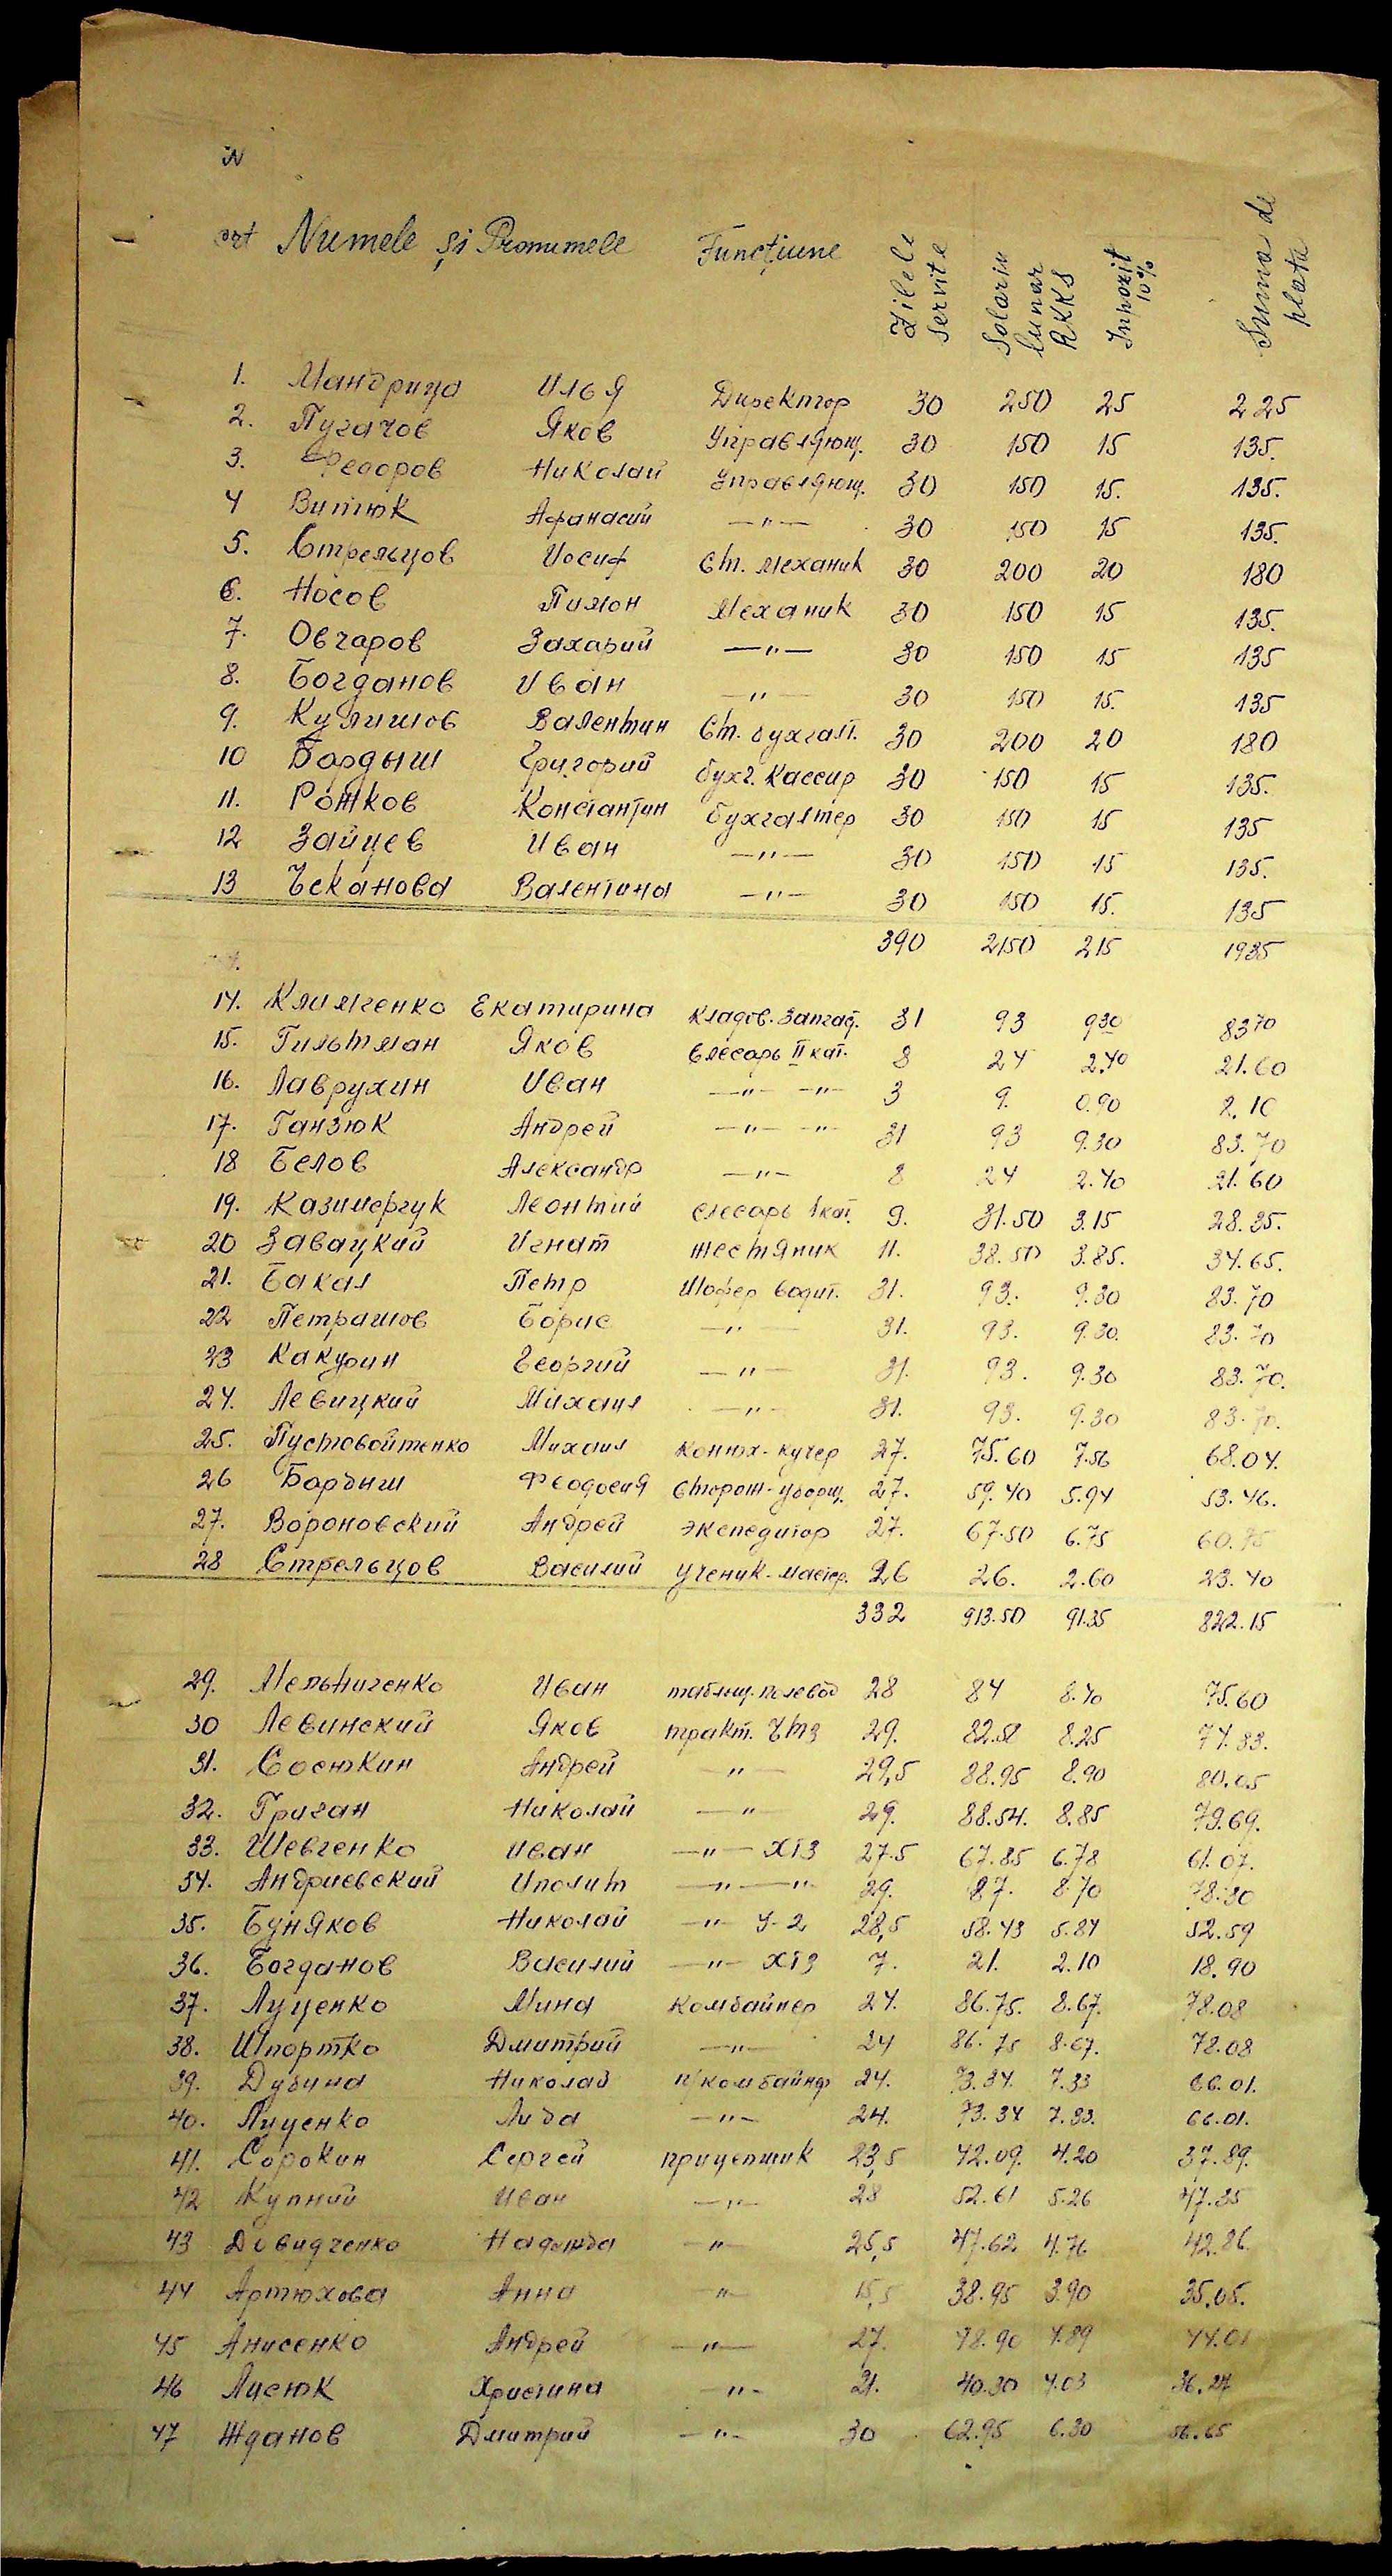 N
crt Numele și Pronumele Funcțiune Zilele servite Solariu lunar RKKS Inpozit 10% Suma de plata
1. Мандрица Илья Директор 30 250 25 225
2. Пугачов Яков Управляющ. 30 150 15 135.
3. Феодоров Николай Управляющ. 30 150 15. 135.
4 Витюк Афанасий —"— 30 150 15 135.
5. Стрельцов Иосиф Ст. механик 30 200 20 180
6. Носов Пимон Механик 30 150 15 135.
7. Овчаров Захарий —"— 30 150 15 135
8. Богданов Иван —"— 30 150 15. 135
9. Кулишов Валентин Ст. бухгалт. 30 200 20 180
10 Бардыш Григорий бухг. Кассир 30 150 15 135.
11. Рожков Константин бухгалтер 30 150 15 135
12 Зайцев Иван —"— 30 150 15 135.
13 Чеканова Валентина —"— 30 150 15. 135
390 2150 215 1935
14. Климченко Екатирина Кладов. Запчаст. 31 93 930 8370
15. Гильтман Яков Слесарь II кат. 8 24 2.40 21.60
16. Лаврухин Иван —"— —"— 3 9. 0.90 8.10
17. Ганзюк Андрей —"— —"— 31 93 9.30 83.70
18 Белов Александр —"— 8 24 2.40 21.60
19. Казимерчук Леонтий слесарь I кат. 9. 31.50 3.15 28.35.
20 Завацкий Игнат жестяник 11. 38.50 3.85. 34.65.
21. Бакал Петр Шофер водит. 31. 93. 9.30 83.70
22 Петрашов Борис —"— 31. 93. 9.30. 83.70
23 Какурин Георгий —"— 31. 93. 9.30 83.70.
24. Левицкий Михаил —"— 31. 93. 9.30 83.70.
25. Пустовойтенко Михаил конюх-кучер 27. 75.60 7.56 68.04.
26 Бардиш Феодосия Сторож-уборщ. 27. 59.40 5.94 53.46.
27. Вороновский Андрей экспедитор 27. 67.50 6.75 60.75
28 Стрельцов Василий Ученик-мастер. 26 26. 2.60 23.40
332 913.50 91.35 822.15
29. Мельниченко Иван полевод 28 84 8.40 75.60
30 Левинский Яков тракт. ЧТЗ 29. 82.58 8.25 74.33.
31. Состкин Андрей —"— 29,5 88.95 8.90 80.05
32. Григан Николай —"— 29. 88.54. 8.85 79.69.
33. Шевченко Иван —"— ХТЗ 27.5 67.85 6.78 61.07.
34. Андриевский Иполит —"——"— 29. 87. 8.70 78.30
35. Буняков Николай —"— У-2 28,5 58.43 5.84 52.59
36. Богданов Василий —"— ХТЗ 7. 21. 2.10 18.90
37. Луценко Мина Комбайнер 24. 86.75. 8.67. 78.08
38. Шпортко Дмитрий —"— 24 86.75 8.67. 78.08
39. Дубина Николай п/комбайнер 24. 73.34. 7.33 66.01.
40. Луценко Лида —"— 24. 73.34 7.33. 66.01.
41. Сорокин Сергей прицепщик 23,5 42.09. 4.20 37.89.
42 Купний Иван —"— 28 52.61 5.26 47.35
43 Довидченко Надежда —"— 25,5 47.62 4.76 42.86.
44 Артюхова Анна —"— 15,5 38.95 3.90 35.05.
45 Анисенко Андрей —"— 27. 48.90 4.89 44.01
46 Лисюк Христина —"— 21. 40.30 4.03 36.27
47 Жданов Дмитрий —"— 30 62.95 6.30 56.65